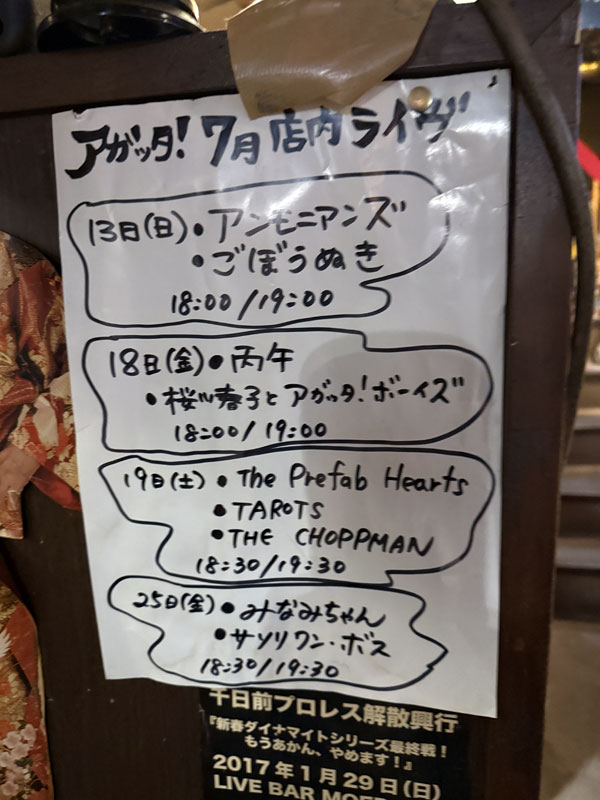 アガッタ! 7月 店内 ライヴ
13日(日)・アンモニアンズ
・ごぼうぬき
18:00/19:00
18日(金)・丙午
・桜川春子とアガッタ!ボーイズ
18:00/19:00
19日(土)・The Prefab Hearts
・TAROTS
・THE CHOPPMAN
18:30/19:30
25日(金)・みなみちゃん
・サソリワン・ボス
18:30/19:30
千日前プロレス解散興行
『新春ダイナマイトシリーズ最終戦!
もうあかん、やめます!』
2017年1月29日(日)
LIVE BAR